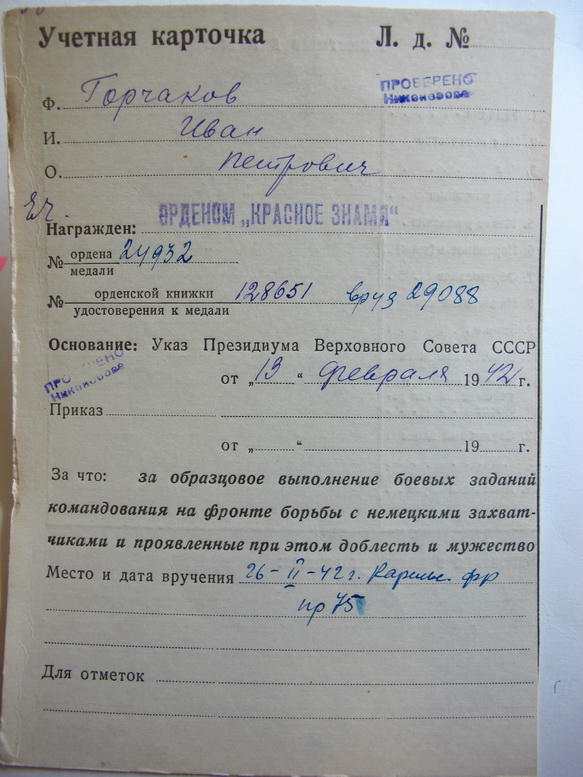 Учетная карточка Л. д. №
ПРОВЕРЕНО
Никонорова
Ф. Горчаков
И. Иван
О. Петрович
Награжден: ОРДЕНОМ „КРАСНОЕ ЗНАМЯ“
№ ордена 24932
медали
№ орденской книжки 128651 вруз 29088
удостоверения к медали
Основание: Указ Президиума Верховного Совета СССР
Никонорова
от „ 13 “ февраля 1942 г.
Приказ
от „ “ 19 г.
За что: за образцовое выполнение боевых заданий
командования на фронте борьбы с немецкими захват-
чиками и проявленные при этом доблесть и мужество
Место и дата вручения 26-II-42г. Карельс. фр
пр 75
Для отметок